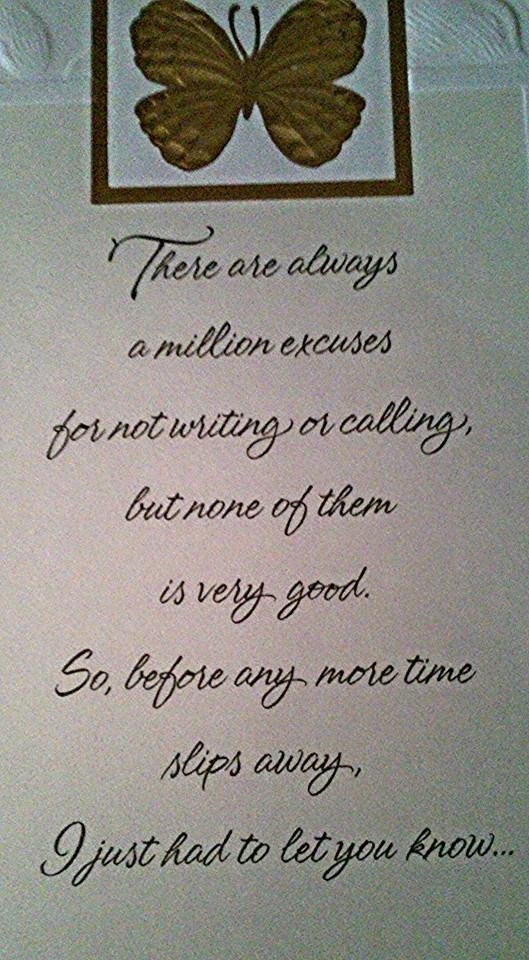 There are always
a million excuses
for not writing or calling,
but none of them
is very good.
So, before any more time
slips away,
I just had to let you know...